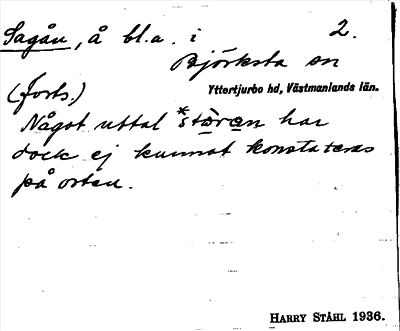 Sagån, å bl.a. i 2.
Björksta sn
(forts.) Yttertjurbo hd, Västmanlands län.
Något uttal *stǡrən har
dock ej kunnat konstateras
på orten.
HARRY STÅHL 1936.